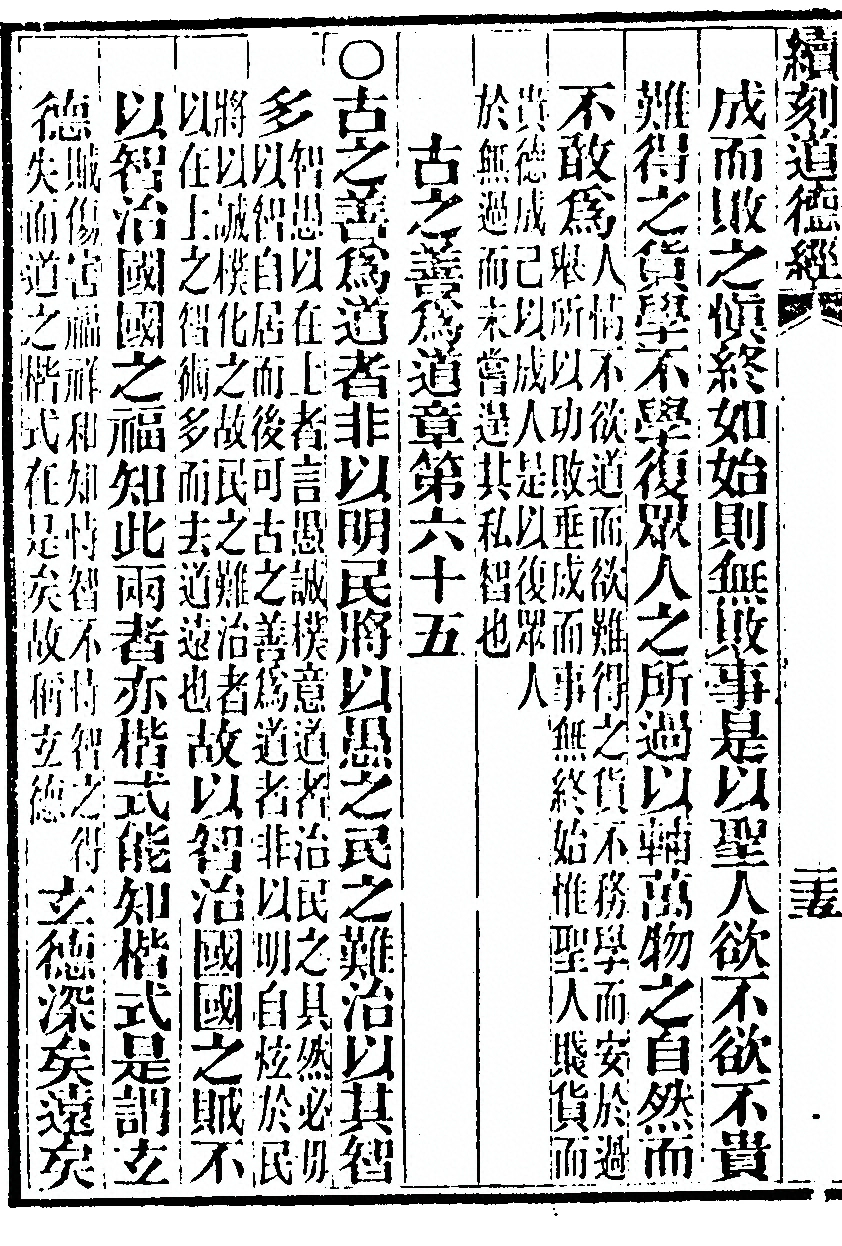 續刻道德經
三五
成而敗之愼終如始則無敗事是以聖人欲不欲不貴
難得之貨學不學復眾人之所過以輔萬物之自然而
不敢爲
人情不欲道而欲難得之貨不務學而安於過
舉所以功敗垂成而事無終始惟聖人賤貨而
貴德成己以成人是以復眾人
於無過而未嘗逞其私智也
古之善爲道章第六十五
〇古之善爲道者非以明民將以愚之民之難治以其智
多
智愚以在上者言愚誠樸意道者治民之具然必毋
以智自居而後可古之善爲道者非以明自炫於民
將以誠樸化之故民之難治者
以在上之智術多而去道遠也
故以智治國國之賊不
以智治國國之福知此兩者亦楷式能知楷式是謂玄
德
賊傷害福祥和知恃智不恃智之得
失而道之楷式在是矣故稱玄德
玄德深矣遠矣